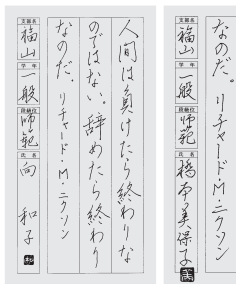 人間は負けたら終わりな
のではない。辞めたら終わり
なのだ。リチャード・M・ニクソン
支部名 福山
学年 一般
段級位 師範
氏名 向 和子
なのだ。リチャード・M・ニクソン
支部名 福山
学年 一般
段級位 師範
氏名 橋本美保子